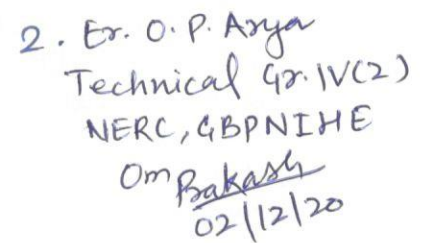 2. Er. O. P. Arya
Technical Gr. IV(2)
NERC, GBPNIHE
Om Prakash
02/12/20